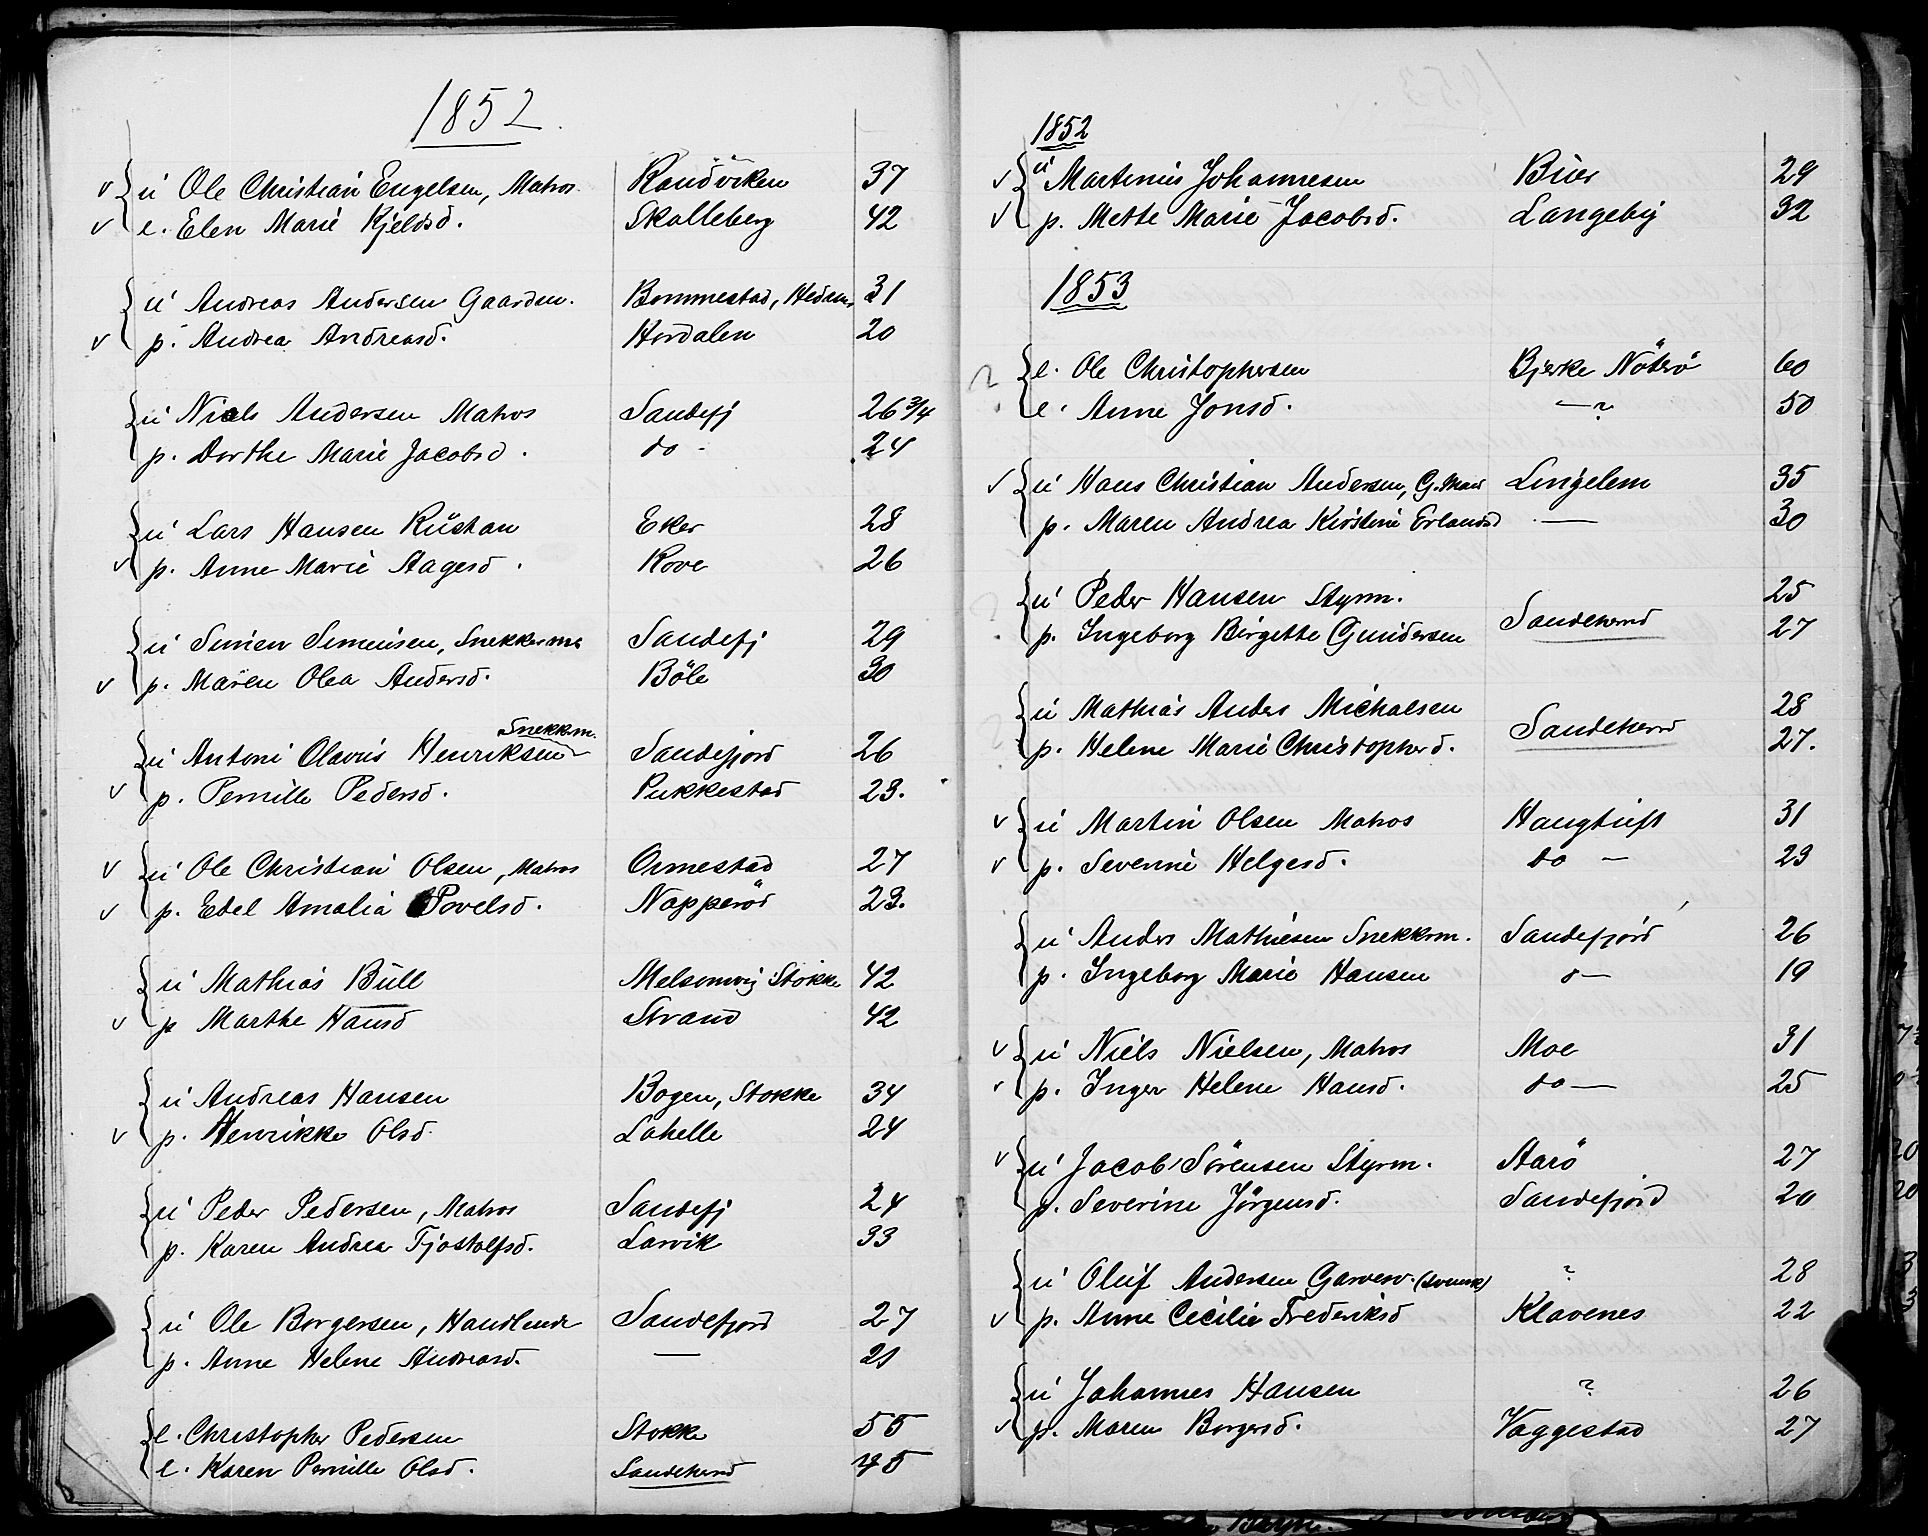 1852.
u Ole Christian Engelsen, Matros. Randviken 37
e. Elen Marie Kjeldsd. Skalleberg 42
u Andreas Andersen Gaardm. Bommestad, Hedrum 31
p. Andrea Andreasd. Hordalen 20
u Niels Andersen Matros Sandefj 26 3/4
p. Dorthe Marie Jacobsd. do - 24
u Lars Hansen Kushan Eker 28
p. Anne Marie Aagesd. Rove 26
u Simen Simensen, Snekkerm. Sandefj 29
p. Maren Olea Andersd. Böle 30
Snekkm.
u Antoni Olavus Henriksen Sandefjord 26
p. Pernille Pedersd. Pukkestad 23.
u Ole Christian Olsen, Matros Ormestad 27
p. Edel Amalia Povelsd. Napperöd 23.
u Mathias Bull Melsomvig Stokke 42
p Marthe Hansd Strand 42
u Andreas Hansen Bogen, Stokke 34
p. Henrikke Olsd. Lahelle 24
u Peder Pedersen, Matros Sandefj 24
p. Karen Andrea Tjostolfsd. Larvik 33
u Ole Borgersen, Handlende Sandefjord 27
p. Anne Helene Andreasd. — 21
e. Christopher Pedersen Stokke 55
e. Karen Pernille Olsd. Sandeherred 45
1852
u Martinus Johannesen Buer 29
p. Mette Marie Jacobsd. Langeby 32
1853
? e. Ole Christophersen Bjerke Nöterö 60
e. Anne Jonsd. —?— 50
u Hans Christian Andersen, G.mand Lingelem 35
p. Maren Andrea Kirstine Erlandsd — 30
? u Peder Hansen Styrm. 25
p. Ingeborg Birgitte Gundersen Sandeherred 27
u Mathias Anders Michalsen 28
p. Helene Marie Christophersd. Sandeherred 27.
u Martin Olsen Matros Haugtuft 31
p. Severine Helgesd. do — 23
u Anders Mathiesen Snekkerm. Sandefjord 26
p. Ingeborg Marie Hansen o— 19
u Niels Nielsen, Matros Moe 31
p. Inger Helene Hansd. do — 25
u Jacob Sörensen Styrm. Aarö 27
p. Severine Jörgensd. Sandefjord 20
u Oluf Andersen Garversv. (svensk) ? 28
p. Anne Cecilie Frederiksd Klavenes 22
u Johannes Hansen ? 26
p. Maren Borgersd. Vaggestad 27